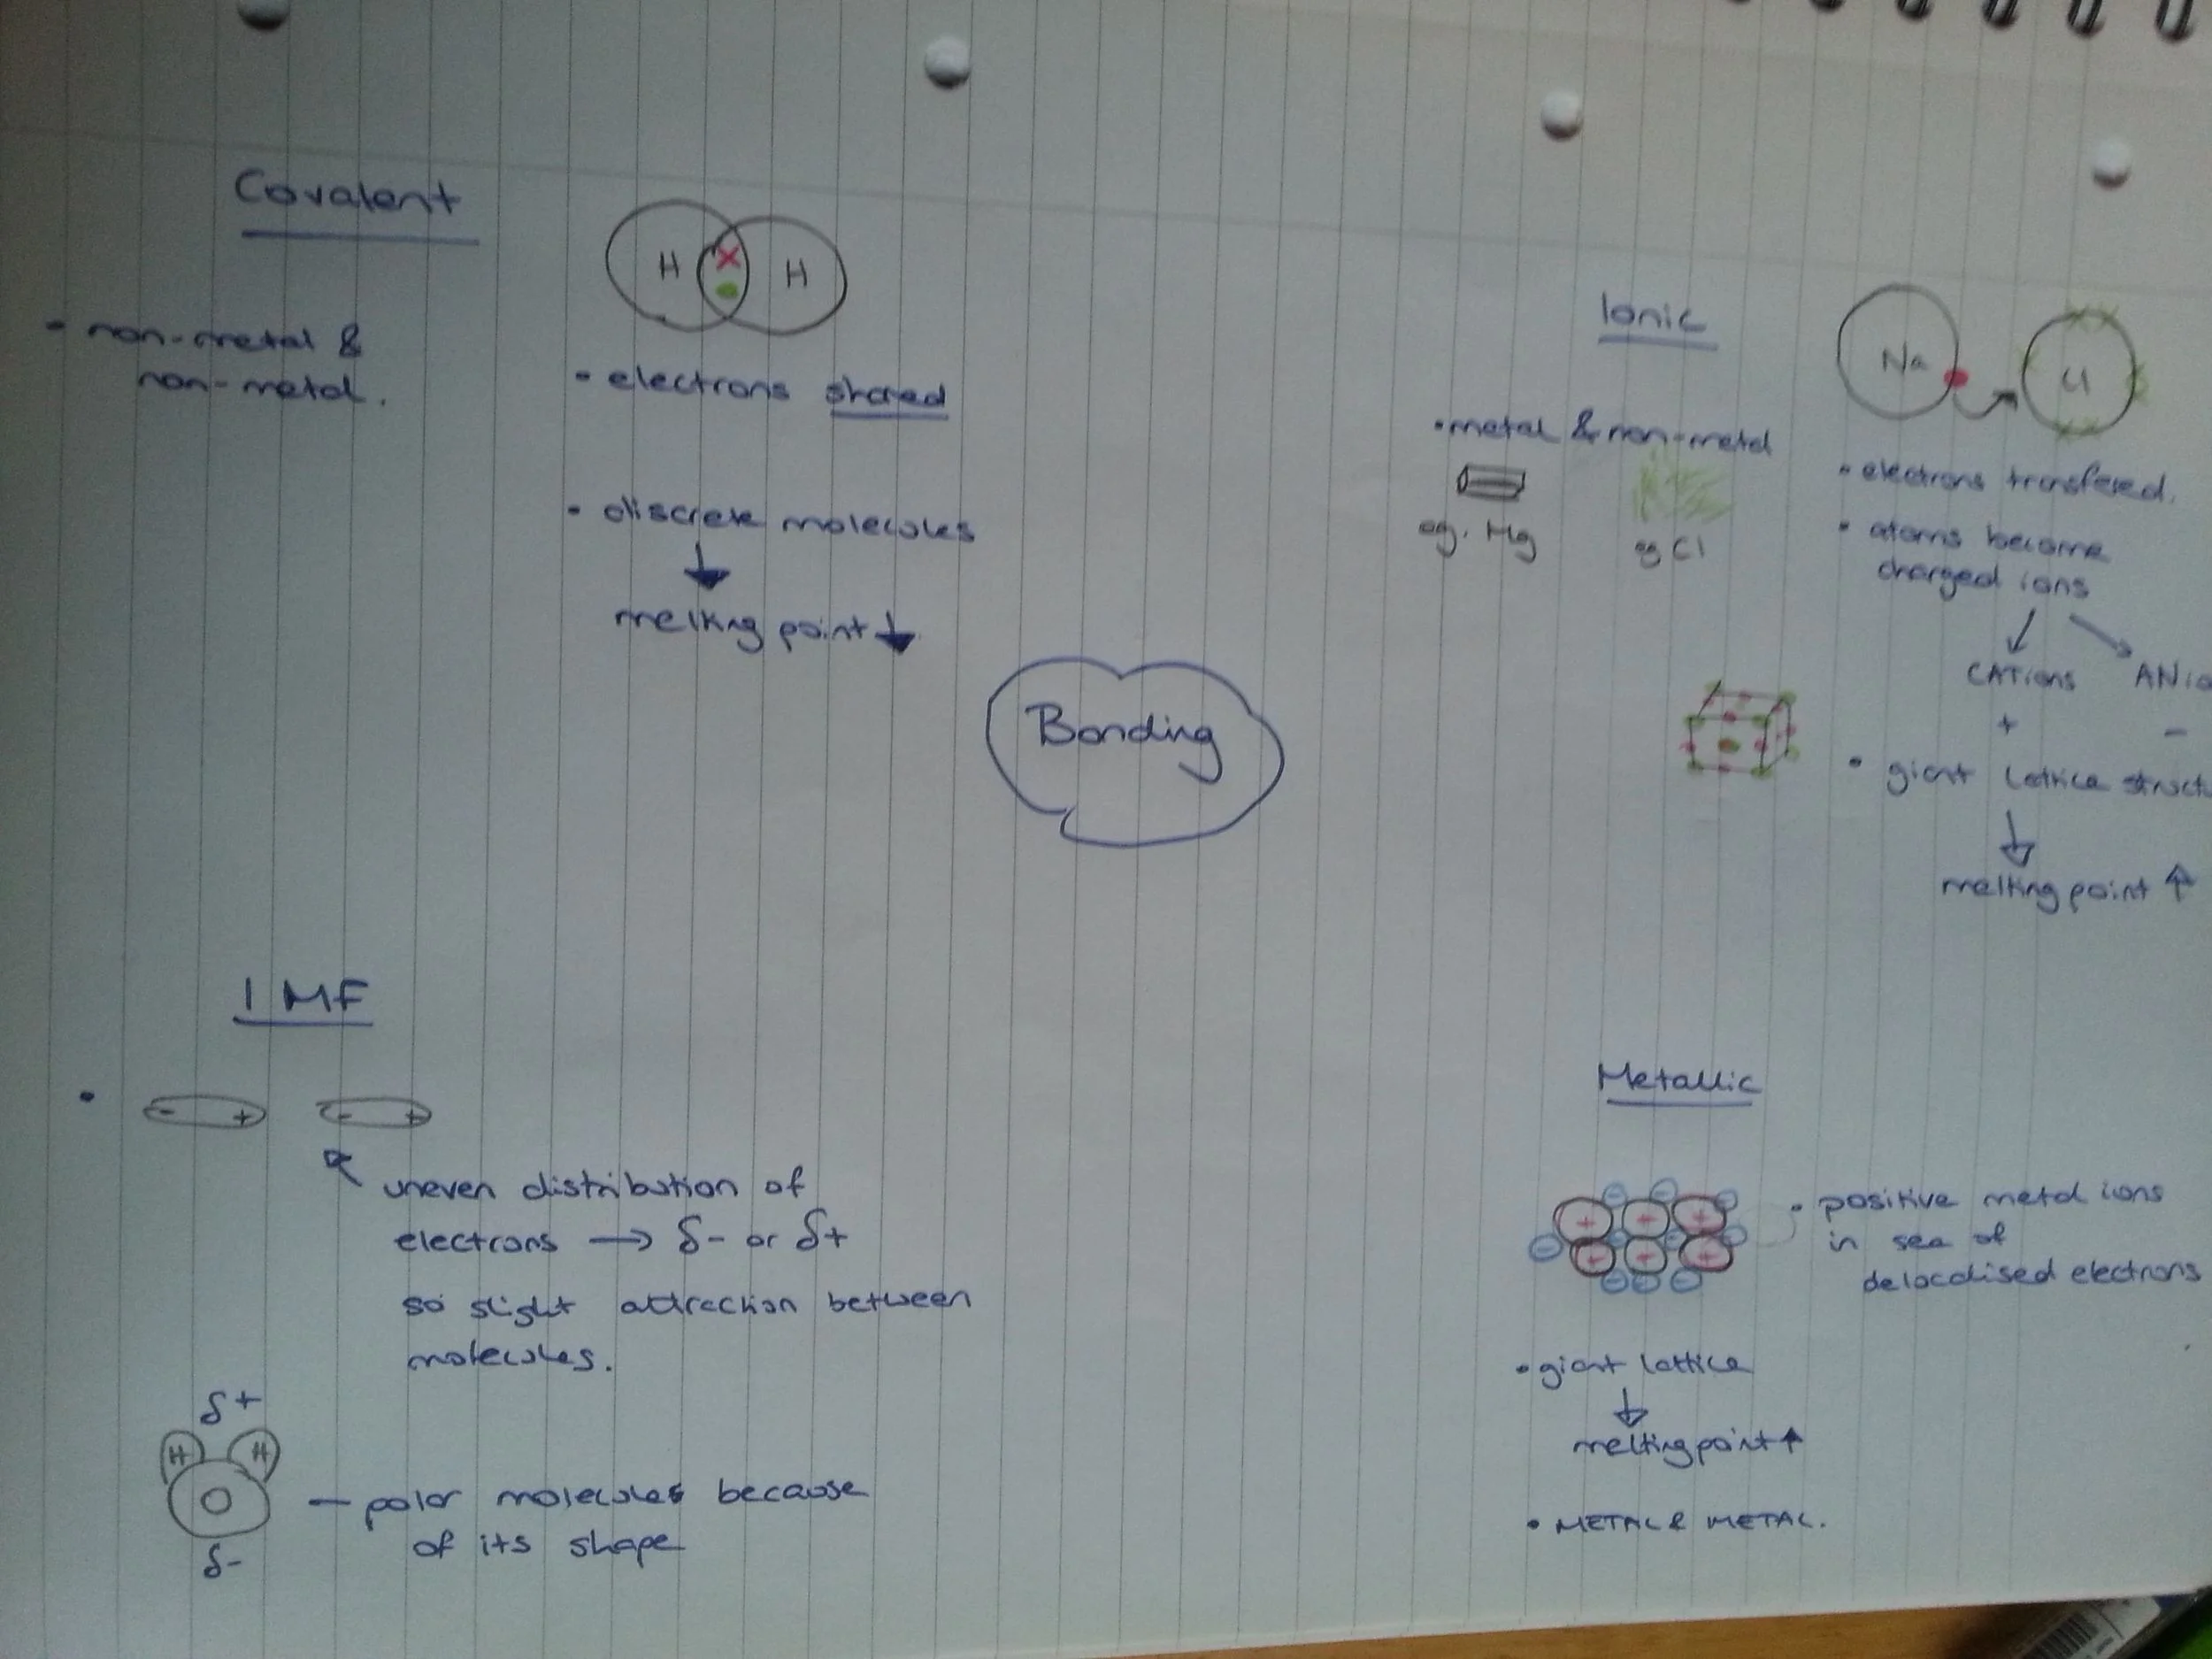 Covalent
H
H
• non-metal &
non-metal.
• electrons shared
• discrete molecules
melting point ↓
Bonding
Ionic
Na
Cl
• metal & non-metal
eg. Mg
eg Cl
• electrons transfered.
• atoms become
charged ions
CATions
+
-
• giant lattice
melting point ↑
IMF
- +
- +
uneven distribution of
electrons → δ- or δ+
so slight attraction between
molecules.
δ+
H
H
O
δ-
— polar molecules because
of its shape
Metallic
+ + +
+ + +
• positive metal ions
in sea of
delocalised electrons
• giant lattice
melting point ↑
• METAL & METAL.